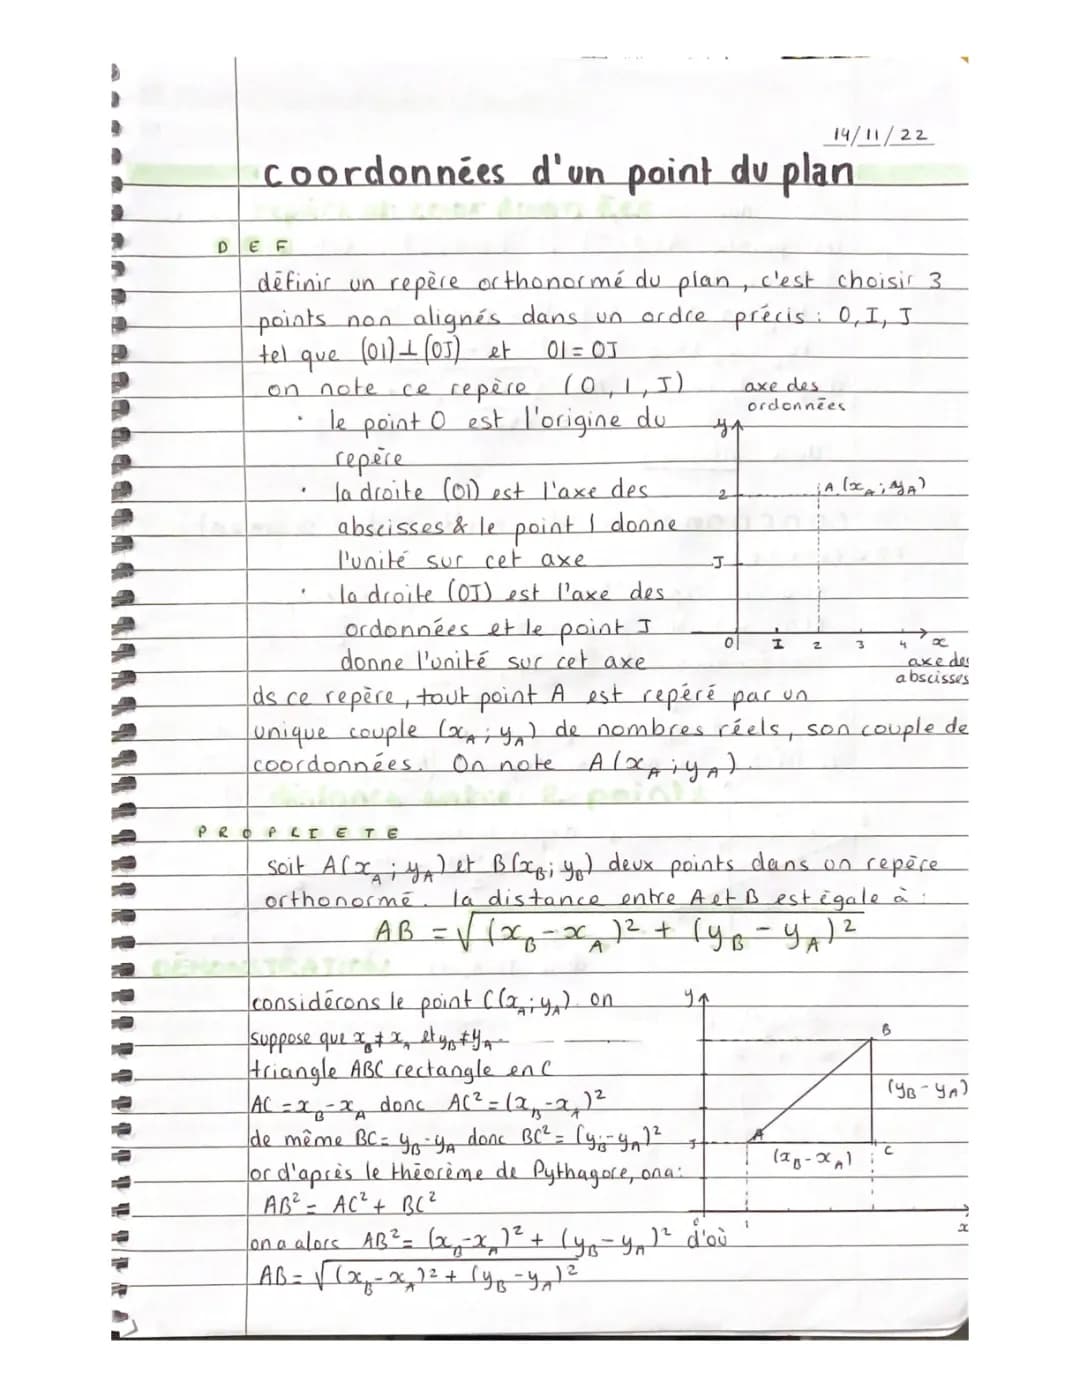 14/11/22
coordonnées d'un point du plan
DEF
définir un repère orthonormé du plan, c'est choisir 3
points non alignés dans un ordre précis : O, I, J
tel que (OI)⊥(OJ) et OI = OJ
on note ce repère (O, I, J)
axe des
ordonnées
· le point O est l'origine du
repère
· la droite (OI) est l'axe des
abscisses & le point I donne
l'unité sur cet axe
· la droite (OJ) est l'axe des
ordonnées et le point J
donne l'unité sur cet axe
y
2
A (x_A ; y_A)
J
O I 2 3 4 x
axe des
abscisses
ds ce repère, tout point A est repéré par un
unique couple (x_A ; y_A) de nombres réels, son couple de
coordonnées. On note A(x_A ; y_A).
PROPRIETE
soit A(x_A ; y_A) et B(x_B ; y_B) deux points dans un repère
orthonormé. la distance entre A et B est égale à :
AB = √(x_B - x_A)² + (y_B - y_A)²
DÉMONSTRATION
considérons le point C(x_A ; y_A) on
suppose que x_B ≠ x_A et y_B ≠ y_A
triangle ABC rectangle en C
AC = x_B - x_A donc AC² = (x_B - x_A)²
de même BC = y_B - y_A donc BC² = (y_B - y_A)²
or d'après le théorème de Pythagore, on a :
AB² = AC² + BC²
on a alors AB² = (x_B - x_A)² + (y_B - y_A)² d'où
AB = √(x_B - x_A)² + (y_B - y_A)²
y
B
(y_B - y_A)
J
A
(x_B - x_A)
C
1
x